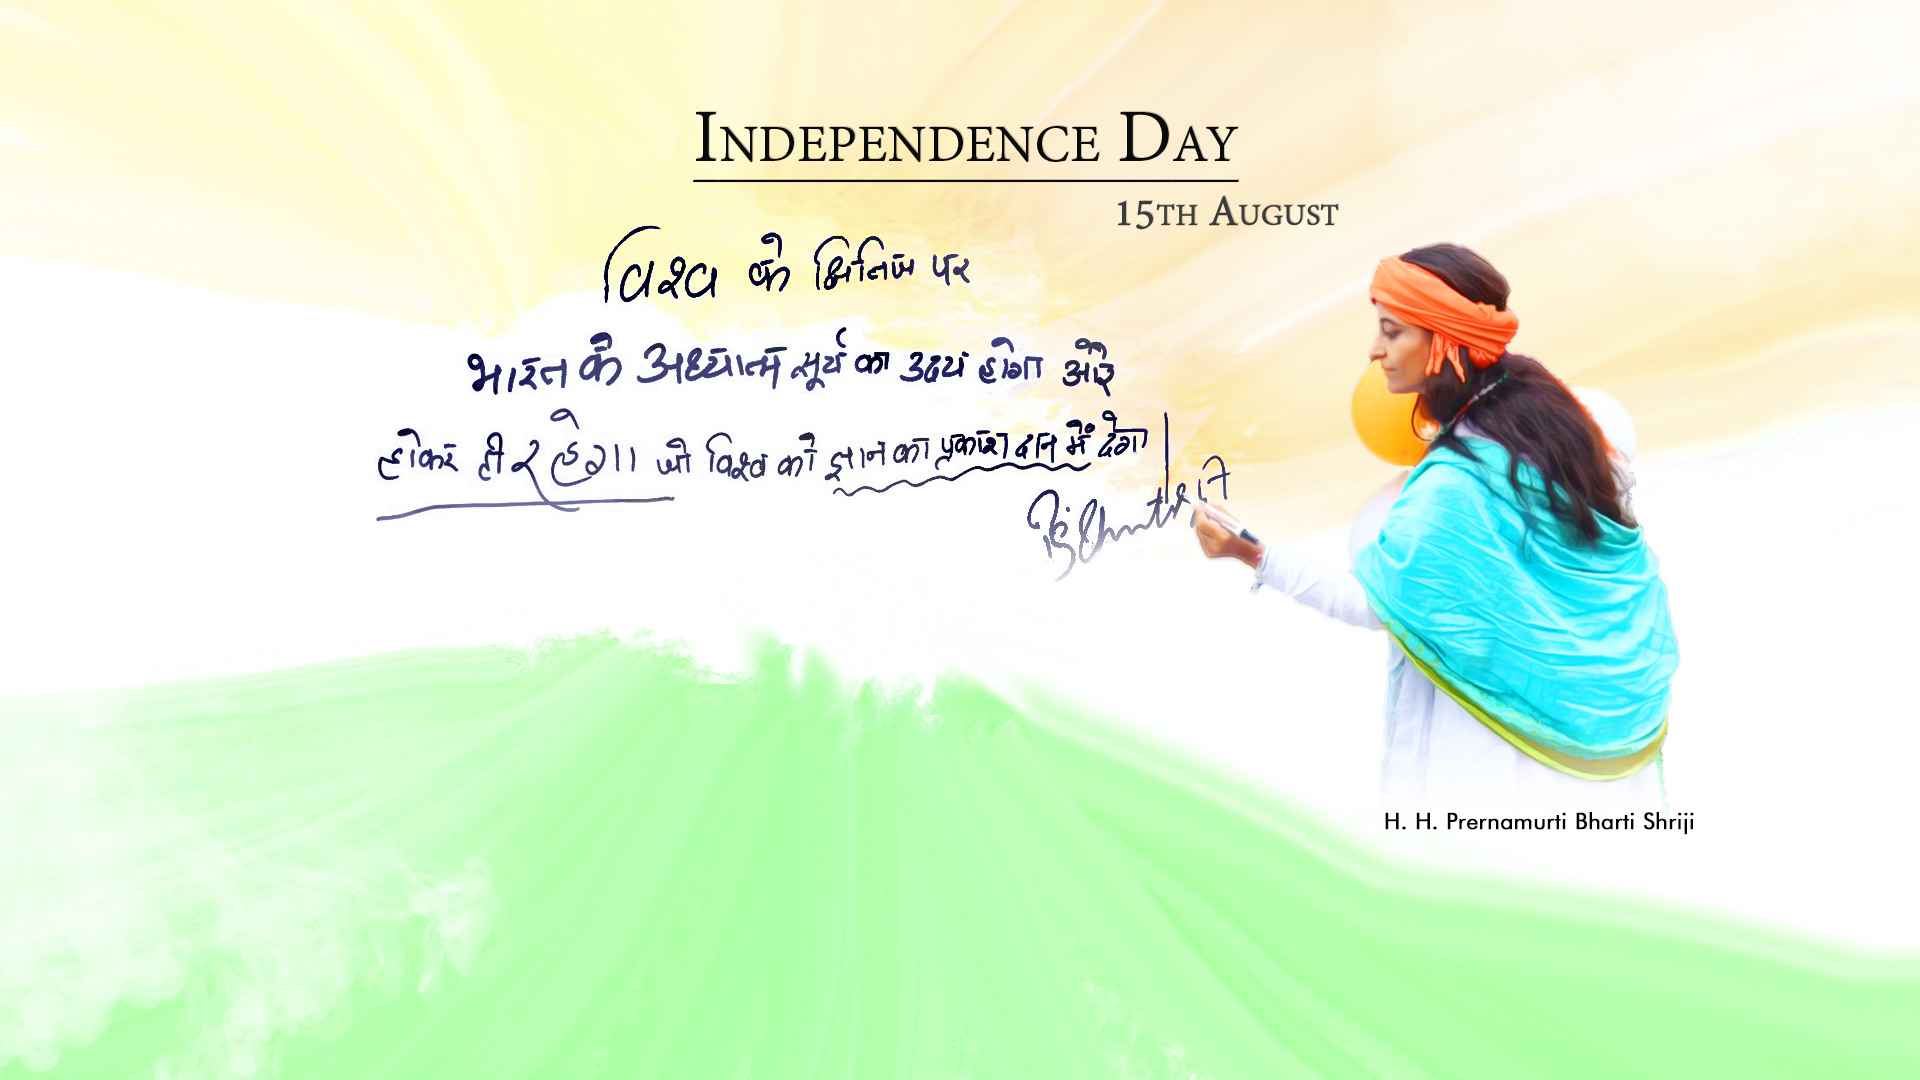 Independence Day
15th August
विश्व के क्षितिज पर
भारत के अध्यात्म सूर्य का उदय होगा और
होकर ही रहेगा जो विश्व को ज्ञान का प्रकाश दान में देगा।
H. H. Prernamurti Bharti Shriji